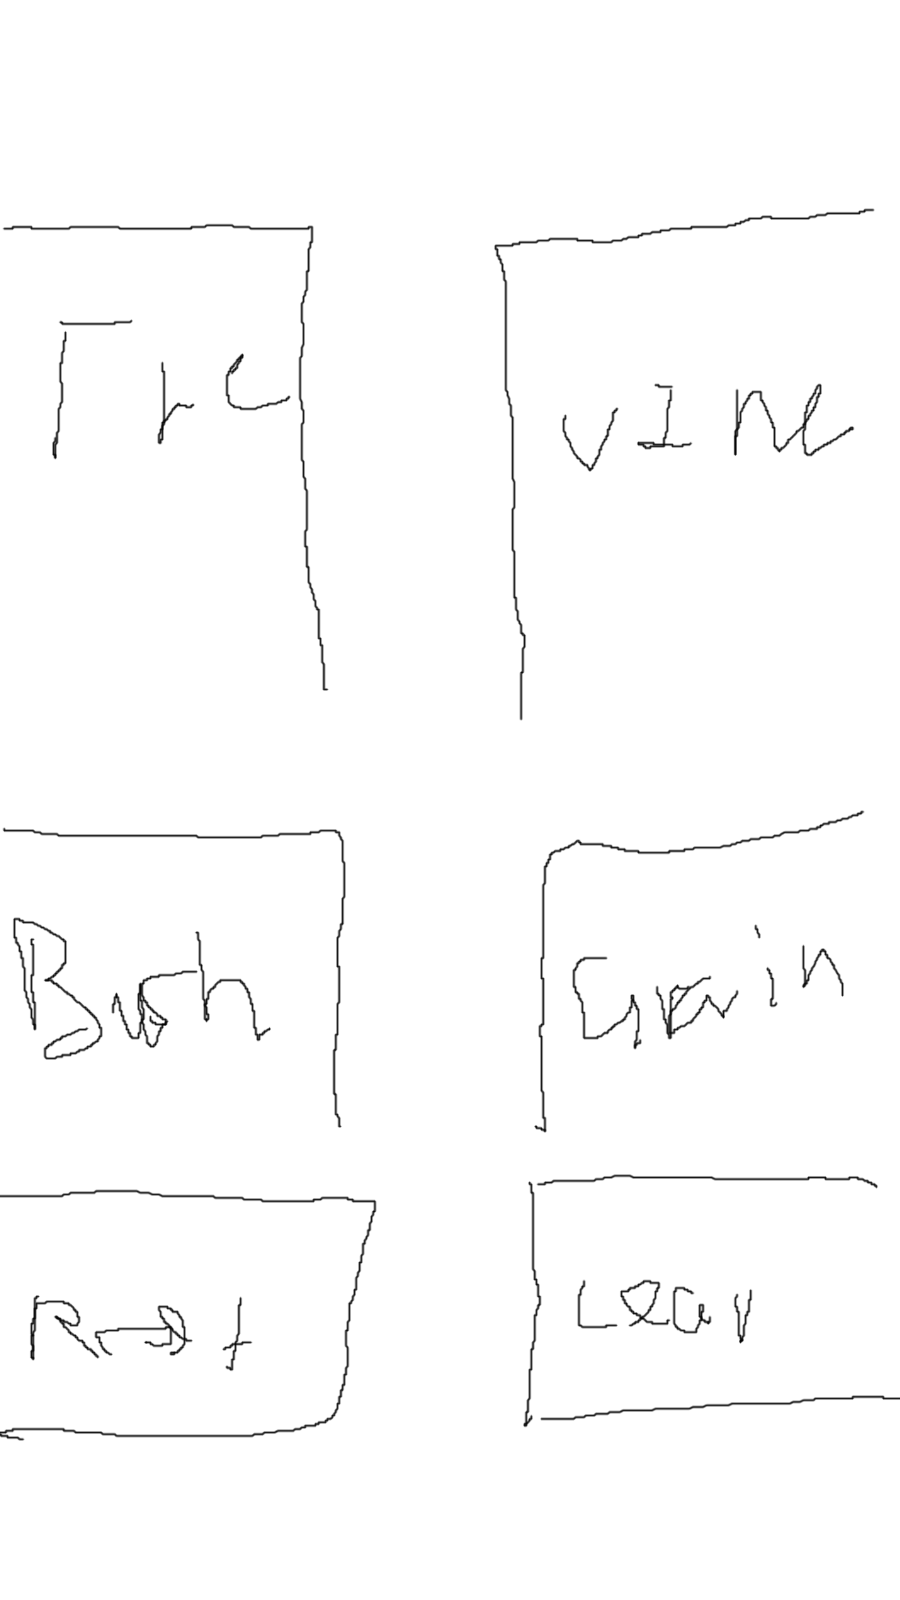 Tre
VINe
Bush
Grain
Root
Leav